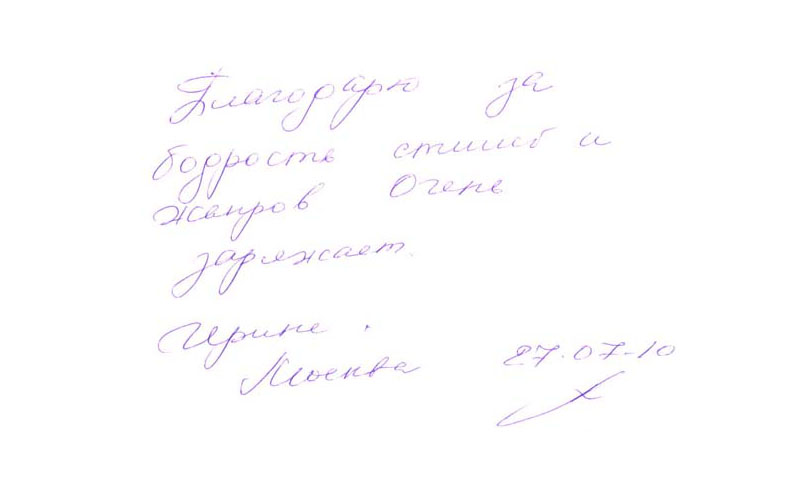 Благодарю за
бодрость стилей и
жанров Очень
заряжает.
Ирине.
Москва 27.07-10